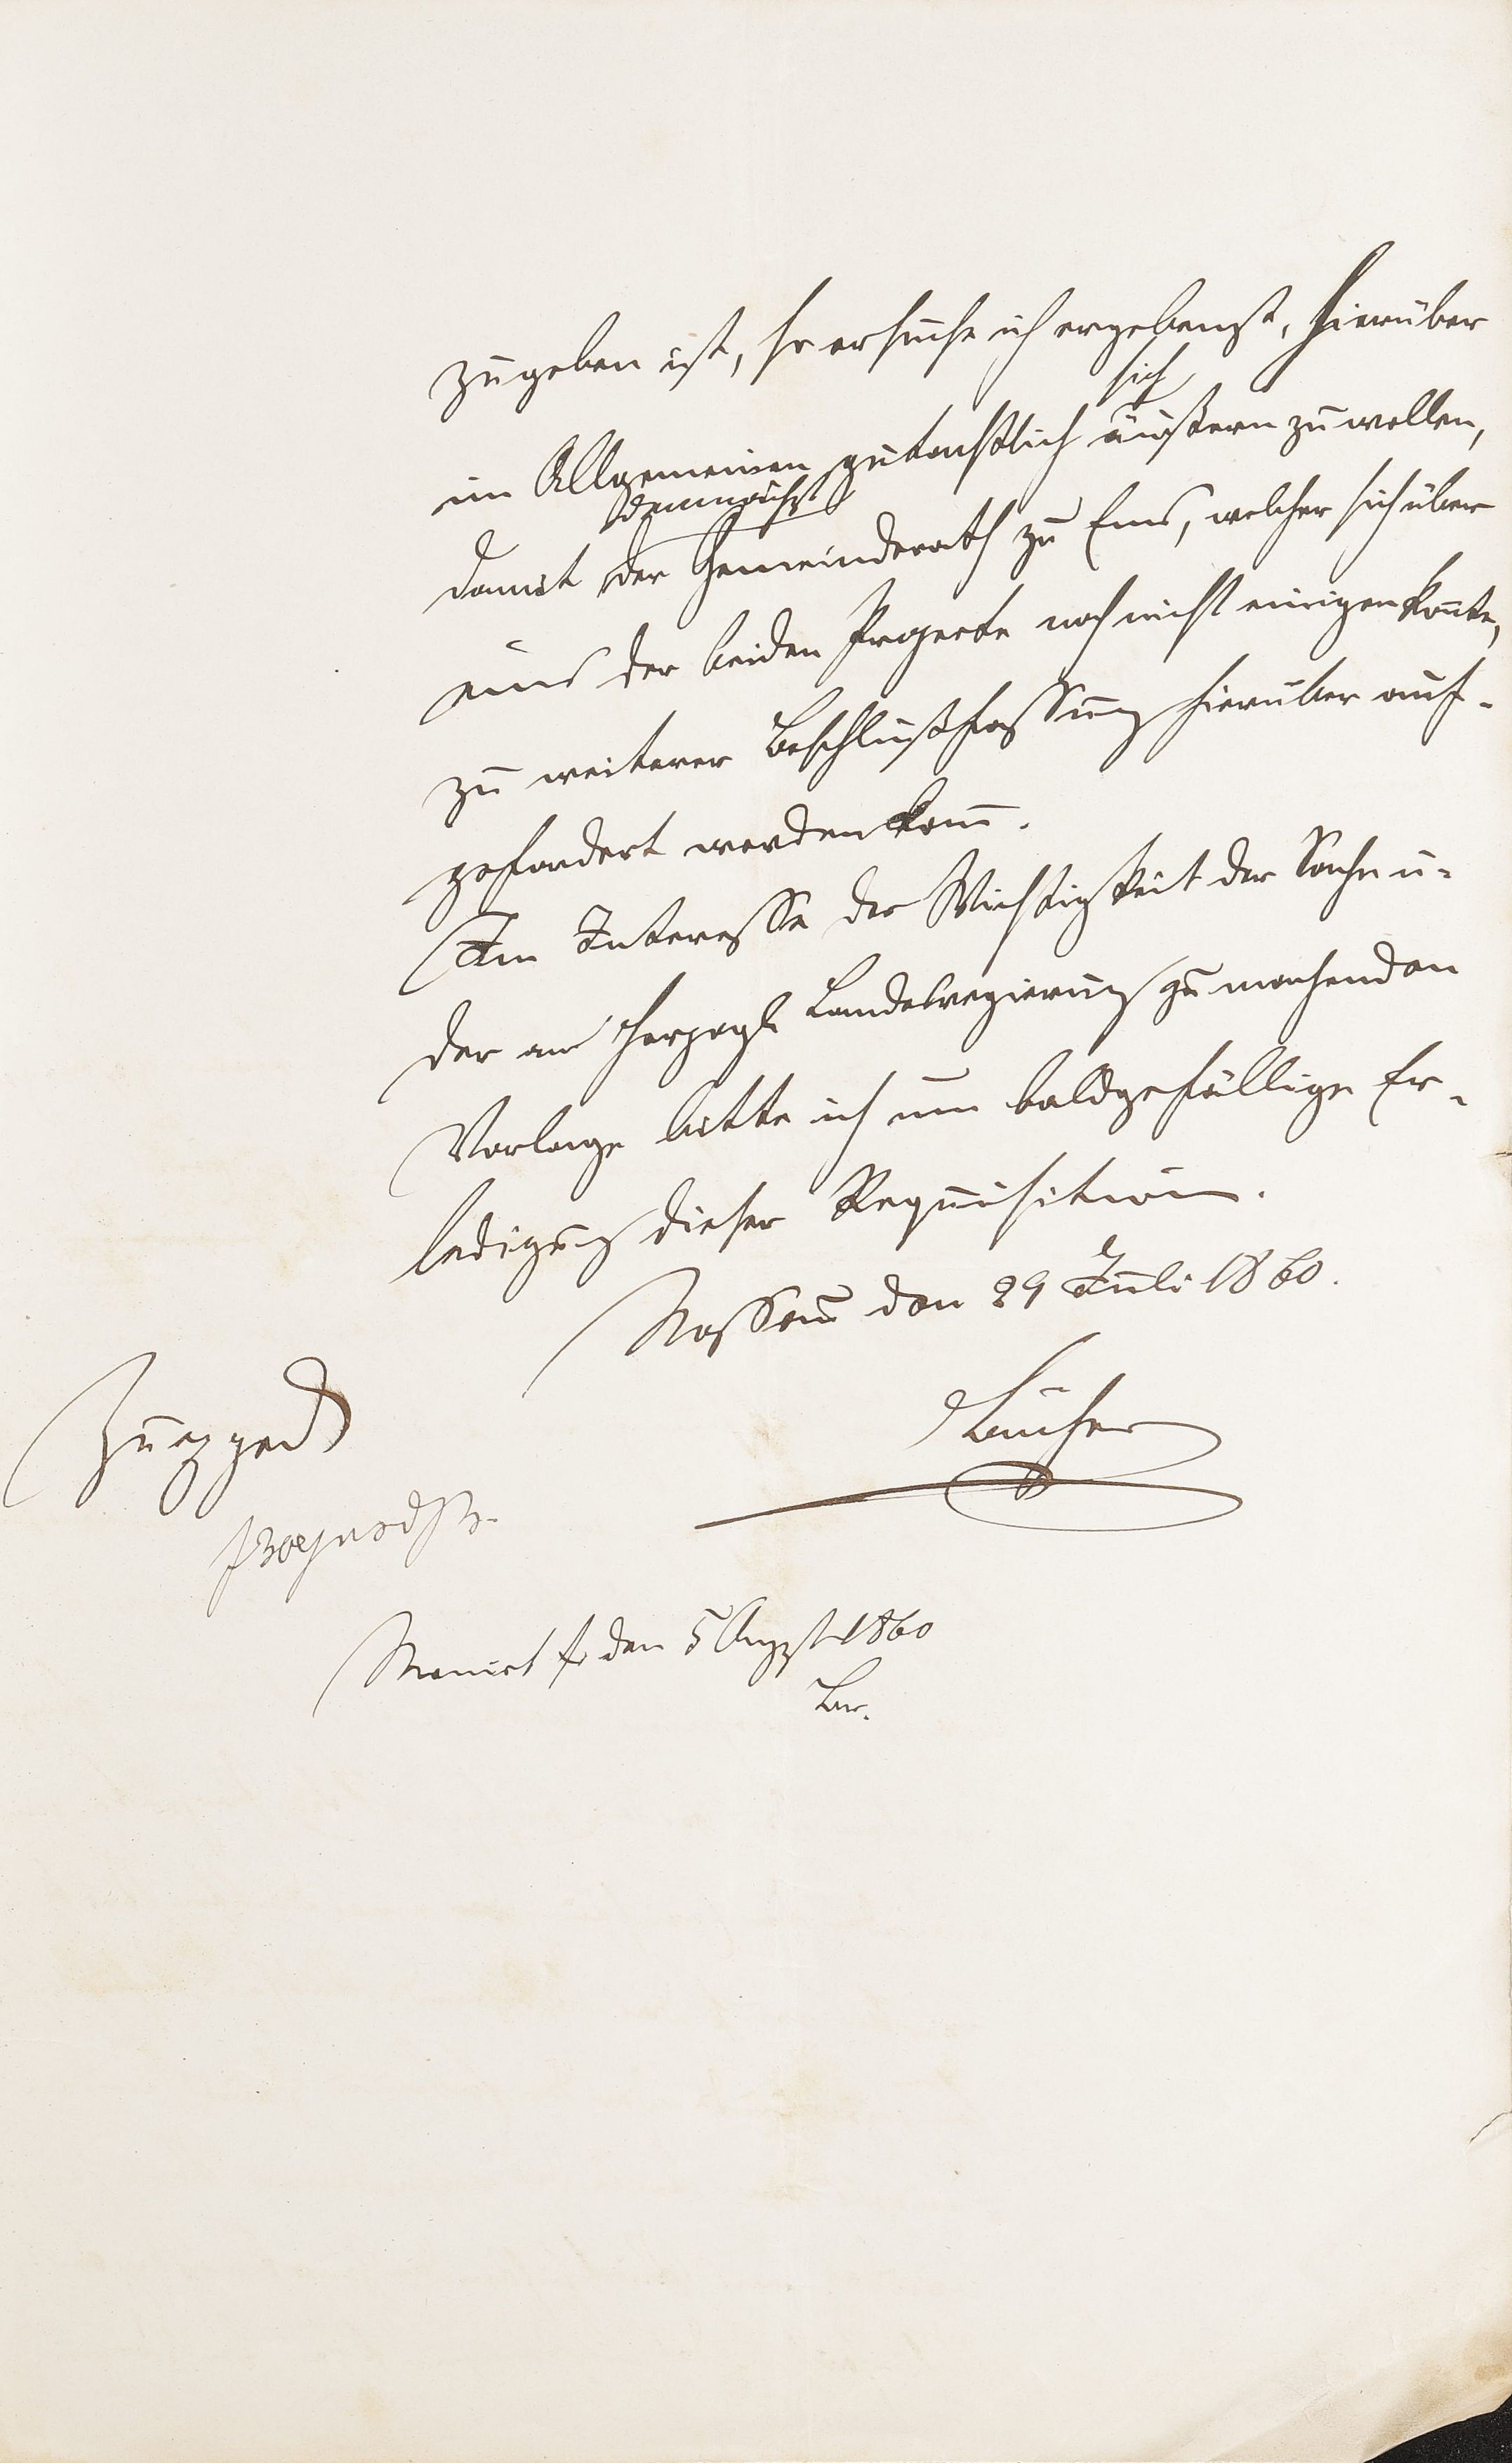 zugeben ist, so ersuche ich ergebenst, hierüber
sich
im Allgemeinen gutachtlich äußern zu wollen,
demnächst
damit der Gemeinderath zu Ems, welcher sich über
eins der beiden Projecte noch nicht einigen konnte,
zu weiterer Beschlußfassung hierüber auf-
gefordert werden kann.
Im Interesse der Wichtigkeit der Sache u.
der an Herzogl. Landesregierung zu machenden
Vorlage bitte ich um baldgefällige Er-
ledigung dieser Requisition.
Nassau den 29 Juli 1860.
den 5 August 1860